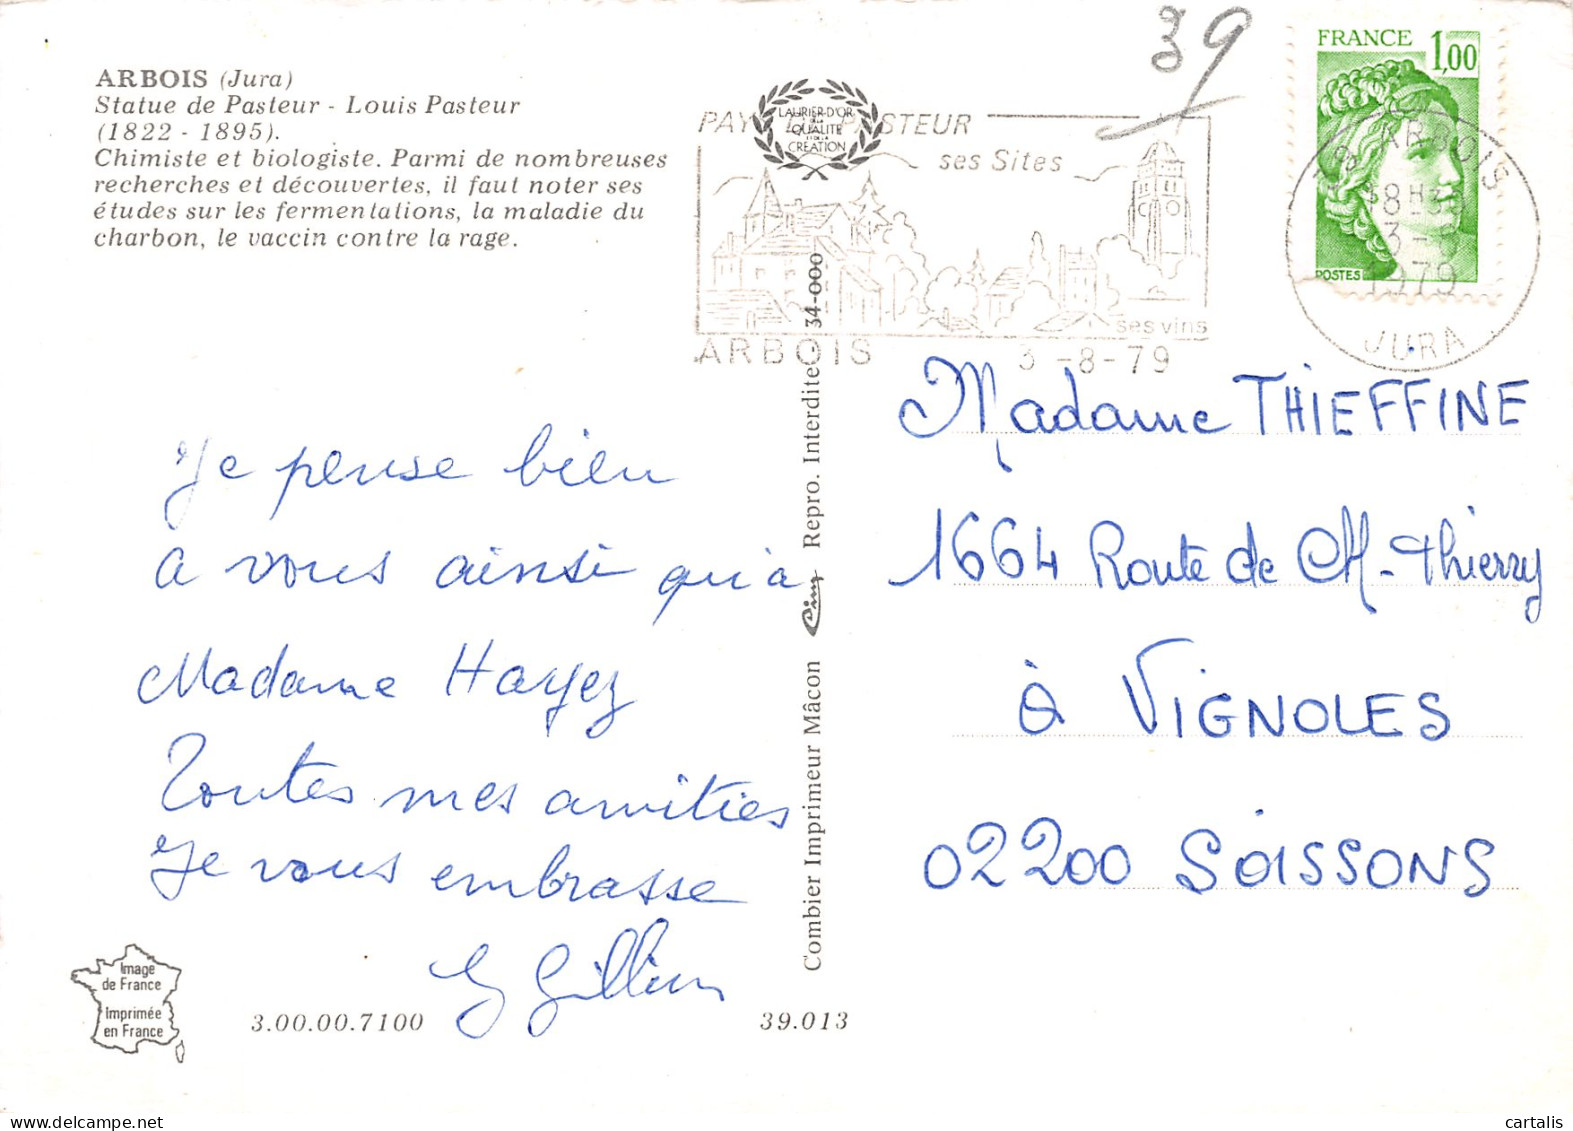 39
ARBOIS (Jura)
Statue de Pasteur - Louis Pasteur
(1822 - 1895).
Chimiste et biologiste. Parmi de nombreuses
recherches et découvertes, il faut noter ses
études sur les fermentations, la maladie du
charbon, le vaccin contre la rage.
LAURIER D'OR
DE LA
QUALITE
ET DE LA
CREATION
PASTEUR
ses Sites
ses vins
ARBOIS 3-8-79
FRANCE 1,00
POSTES
ARBOIS
18 H
3 -
1979
JURA
Je pense bien
a vous ainsi qu'à
Madame Hayez
Toutes mes amitiés
Je vous embrasse
Madame THIEFFINE
1664 Route de CH-Thierry
à VIGNOLES
02200 SOISSONS
Combier Imprimeur Mâcon Cim Repro. Interdite - 34-000
Image
de France
Imprimée
en France
3.00.00.7100
39.013
cartalis